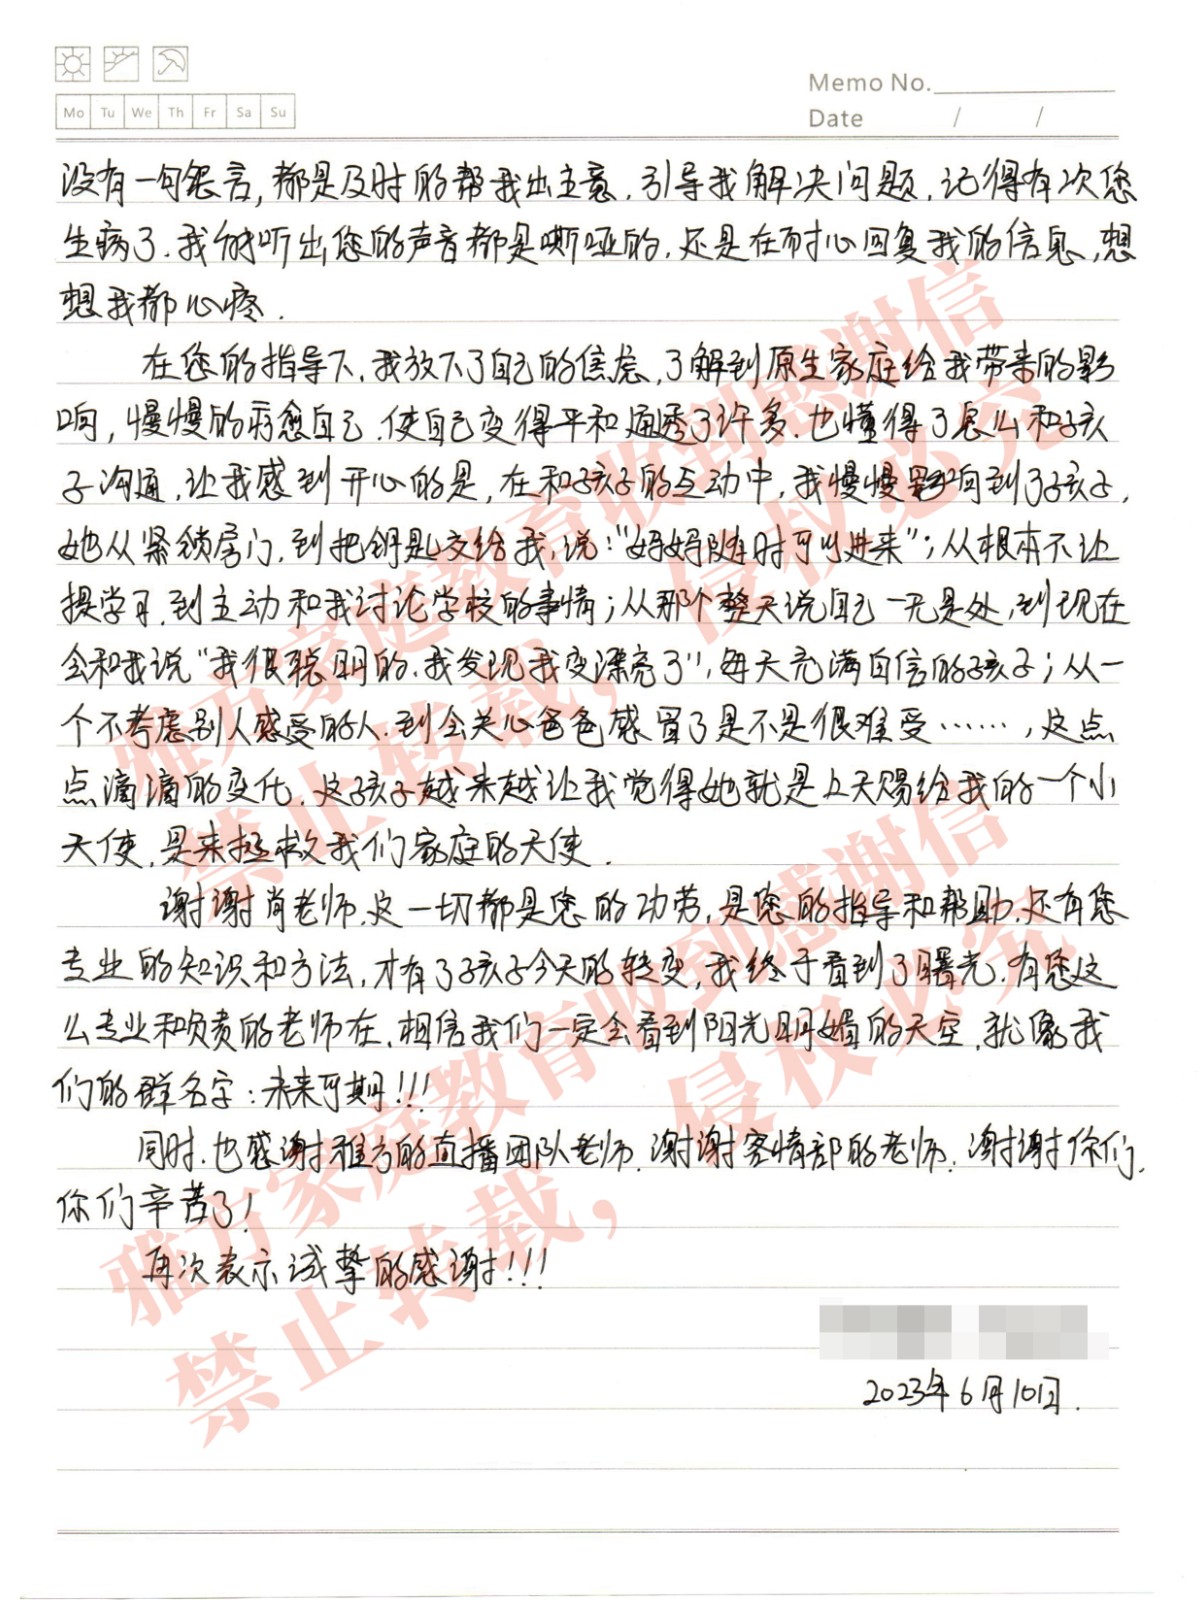 Mo Tu We Th Fr Sa Su
Memo No.
Date / /
没有一句怨言,都是及时的帮我出主意,引导我解决问题,记得有次您
生病了.我能听出您的声音都是嘶哑的,还是在耐心回复我的信息,想
想我都心疼.
在您的指导下,我放下了自己的焦虑,了解到原生家庭给我带来的影
响,慢慢的疗愈自己.使自己变得平和通透了许多.也懂得了怎么和孩
子沟通,让我感到开心的是,在和孩子的互动中,我慢慢影响到了孩子,
她从紧锁房门,到把钥匙交给我,说:“妈妈随时可以进来”;从根本不让
提学习,到主动和我讨论学校的事情;从那个整天说自己一无是处,到现在
会和我说“我很聪明的.我发现我变漂亮了”,每天充满自信的孩子;从一
个不考虑别人感受的人.到会关心爸爸感冒了是不是很难受……,这点
点滴滴的变化,这孩子越来越让我觉得她就是上天赐给我的一个小
天使,是来拯救我们家庭的天使.
谢谢肖老师,这一切都是您的功劳,是您的指导和帮助,还有您
专业的知识和方法,才有了孩子今天的转变,我终于看到了曙光.有您这
么专业和负责的老师在,相信我们一定会看到阳光明媚的天空,就像我
们的群名字:未来可期!!!
同时.也感谢雅方的直播团队老师.谢谢客情部的老师.谢谢你们,
你们辛苦了!
再次表示诚挚的感谢!!!
2023年6月10日.
雅方家庭教育收到感谢信
禁止转载,侵权必究
雅方家庭教育收到感谢信
禁止转载,侵权必究